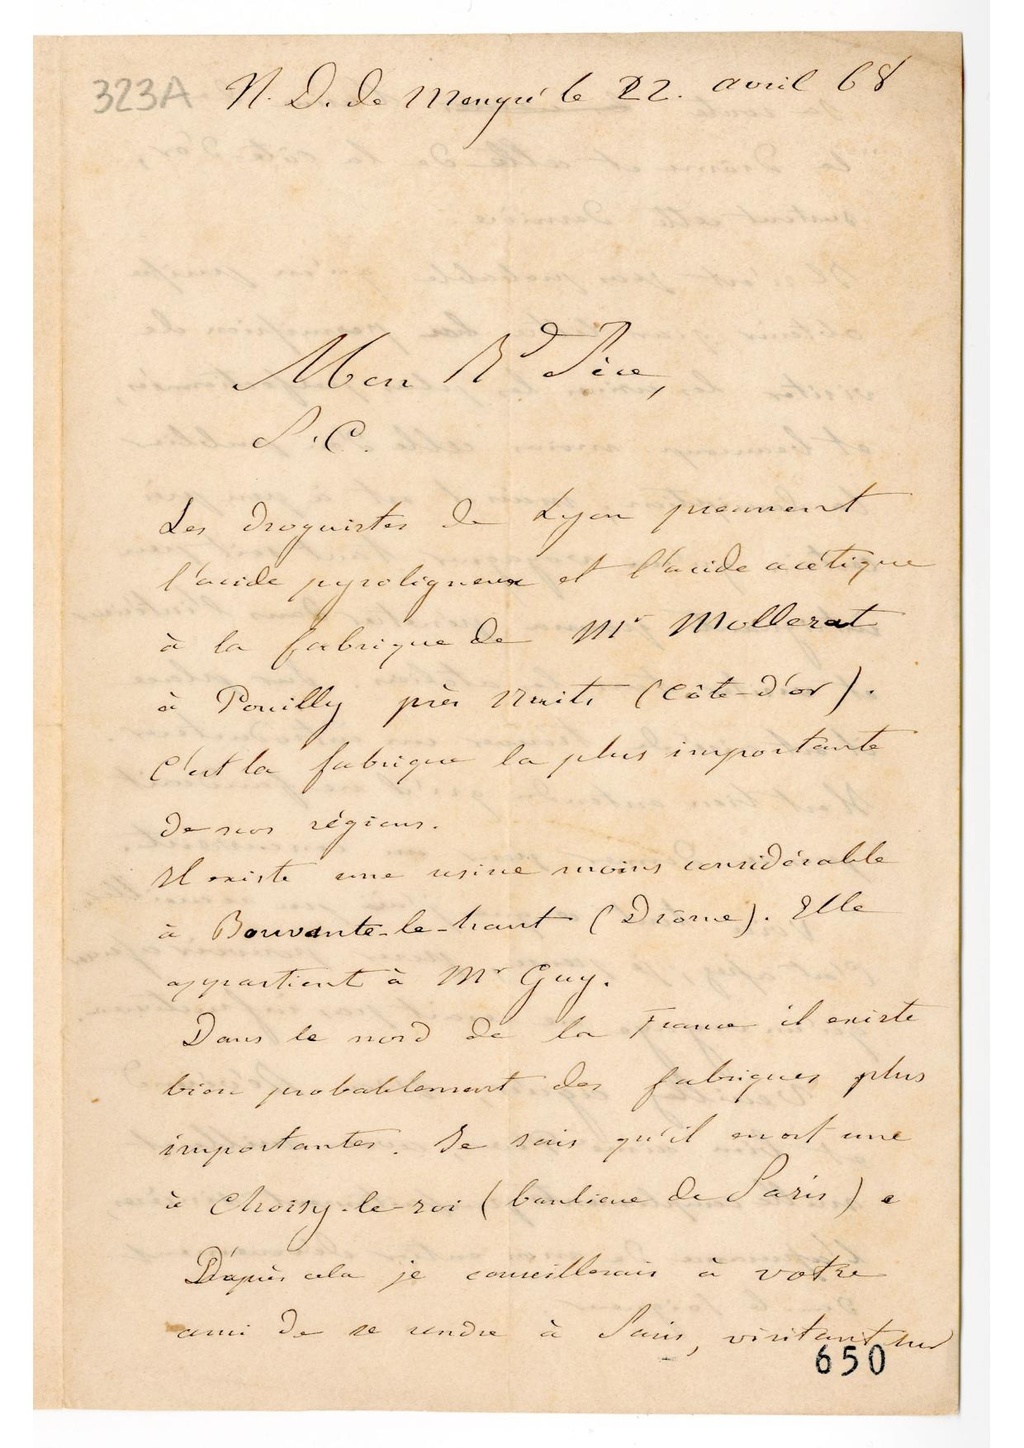 323A N. D. de Mongré le 22. avril 68
Mon Rd Père,
P. C.
Les droguistes de Lyon prennent
l'acide pyroligneux et l'acide acétique
à la fabrique de Mr Mollerat
à Pouilly près Nuits (Côte-d'or).
C'est la fabrique la plus importante
de nos régions.
Il existe une usine moins considérable
à Bouvante-le-haut (Drôme). Elle
appartient à Mr Guy.
Dans le nord de la France il existe
bien probablement des fabriques plus
importantes. Je sais qu'il en est une
à Choisy-le-roi (banlieue de Paris).
D'après cela je conseillerais à votre
ami de se rendre à Paris, visitant sur
650